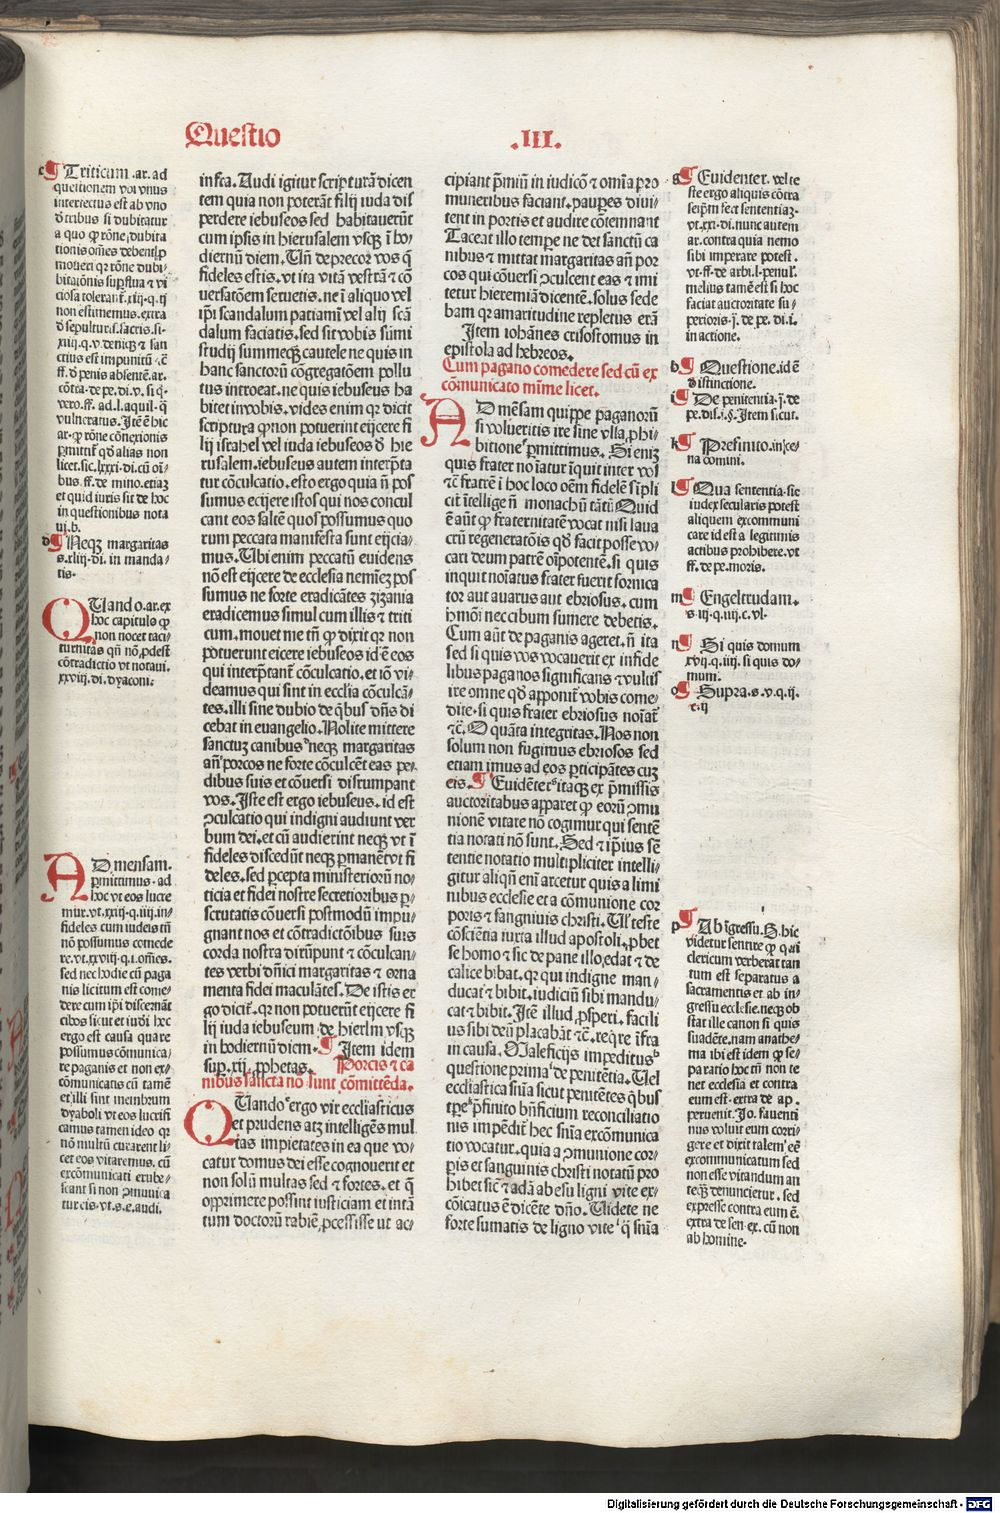 Questio .III.
c ¶ Triticum .ar. ad
questionem vbi vnus
interfectus est ab vno
d̄ tribus si dubitatur
a quo ꝙ rōne dubita
tionis om̄es debent ꝑ
moueri qꝛ rōne dubi-
bitatōnis suꝑflua ⁊ vi
ciosa tolerant̄. xiij. q. ij
non estimemus. extra
d̄ sepultur. s. sacris. si-
xiij. q. v. deniqꝫ ⁊ san
ctius est impunitū ⁊c̄
ff. d̄ penis absentē. ar.
cōtra. de pe. di. v. si q̄-
vero. ff. ad. l. aquil. q̄
vulneratus. Itē ē hic
ar. ꝙ rōne cōnexionis
ꝑmittit̄ qd̄ alias non
licet. sic. lxxxi. di. cū oī-
bus. ff. de mino. etiaꝫ
et quid iuris sit de hoc
in questionibus nota
ui. b.
d ¶ Neqꝫ margaritas
s. xliij. di. in manda-
tis.
QUando. ar. ex
hoc capitulo ꝙ
non nocet taci-
turnitas qn̄ nō ꝓdest
cōtradictio vt notaui.
xxviii. di. dyaconi.
AD mensam.
ꝑmittimus. ad
hoc vt eos lucre
mur. vt. xxiij. q. iiij. in-
fideles cum iudeis tn̄
nō possumus comede
re. vt. xxviij. q. i. om̄es.
sed nec hodie cū paga
nis licitum est come-
dere cum ip̄i discernāt
cibos sicut et iudi hec
ergo est causa quare
possumus cōmunica-
re paganis et non ex-
cōmunicans cū tamē
et illi sint membrum
dyaboli vt eos lucrifi
camus tamen ideo qꝛ
nō multū curarent li-
cet eos vitaremus. cū
excōmunicati erube-
scant si non ↄmuuica
tur eis. vt. s. e. audi.
infra. Audi igitur scripturā dicen
tem quia non poterāt filij iuda dis
perdere iebuseos sed habitauerūt
cum ipsis in hierusalem vsqꝫ ī ho-
diernū diem. Un̄ deprecor vos q̄
fideles estis. vt ita vitā vestrā ⁊ cō
uersatōem seruetis. ne ī aliquo vel
ip̄i scandalum patiami vel alij scā
dalum faciatis. sed sit vobis sūmi
studij summeqꝫ cautele ne quis in
hanc sanctorū cōgregatōem pollu
tus introeat. ne quis iebuseus ha
bitet in vobis. vides enim qꝛ dicit
scriptura ꝙ non potuerint eijcere fi
lij israhel vel iuda iebuseos d̄ hie
rusalem. iebuseus autem interp̄ta
tur cōculcatio. esto ergo quia n̄ pos
sumus ecijere istos qui nos concul
cant eos saltē quos possumus quo
rum peccata manifesta sunt eijcia-
mus. Ubi enim peccatū euidens
nō est eijcere de ecclesia neminēꝫ pos
sumus ne forte eradicātes zizania
eradicemus simul cum illis ⁊ triti
cum. mouet me tn̄ ꝙ dixit qꝛ non
potuerunt eicere iebuseos id ē eos
qui interp̄tant̄ cōculcatio. et iō vi-
deamus qui sint in ecclīa cōculcā-
tes. illi sine dubio de qbus dn̄s di
cebat in euangelio. Nolite mittere
sanctuꝫ canibus neqꝫ margaritas
an̄ porcos ne forte cōculcēt eas pe-
dibus suis et cōuersi disrumpant
vos. Iste est ergo iebuseus. id est
ↄculcatio qui indigni audiunt ver
bum dei. et cū audierint neqꝫ vt ī
fideles discedūt neqꝫ ꝑmanēt vt fi
deles. sed ꝑcepta ministeriorū no-
ticia et fidei nostre secretioribus ꝑ-
scrutatis cōuersi postmodū impu-
gnant nos et cōtradictōibus suis
corda nostra dirūpunt ⁊ cōculcan-
tes verbi dn̄ici margaritas ⁊ orna
menta fidei maculātes. De istis er
go dicit̄. qꝛ non potuerūt eijcere fi
lij iuda iebuseum de hierlm̄ vsqꝫ
in hodiernū diem. ¶ Item idem
suꝑ. xij. ꝓphetas. Porcis ⁊ ca
nibus sancta nō sunt cōmittēda.
QUando ergo vir eccl̄iasticus
et prudens atqꝫ intelligēs mul
tas impietates in ea que vo-
catur domus dei esse cognouerit et
non solū multas sed ⁊ fortes. et q̄
opprimere possint iusticiam et intā
tum doctorū rabiē ꝓcessisse ut ac-
cipiant p̄miū in iudicō ⁊ om̄ia pro
muneribus faciant. pauꝑes diui-
tent in portis et audite cōtemnant
Taceat illo temꝑe ne det sanctū ca
nibus ⁊ mittat margaritas an̄ por
cos qui cōuersi ↄculcent eas ⁊ imi
tetur hieremiā dicentē. solus sede
bam qꝛ amaritudine repletus erā
Item iohānes crisostomus in
epistola ad hebreos.
Cum pagano comedere sed cū ex
cōmunicato mīme licet.
AD mēsam quippe paganorū
si volueritis ire sine vlla ꝓhi-
bitione ꝑmittimus. Si eniꝫ
quis frater noīatur inquit inter vos
⁊c̄ fratrē ī hoc loco oēm fidelē sīpli
cit̄ ītellige n̄ monachū tātū Quid
ē aūt ꝙ fraternitatē vocat nisi laua
crū regeneratōis qd̄ facit posse vo-
cari deum patrē oīpotentē. si quis
inquit noīatus frater fuerit fornica
tor aut auarus aut ebriosus. cum
hm̄oi nec cibum sumere debetis.
Cum aūt de paganis ageret. n̄ ita
sed si quis vos vocauerit ex infide
libus paganos significans ⁊ vultis
ire omne qd̄ apponit̄ vobis come-
dite. si quis frater ebriosus noīat̄
⁊c̄. O quāta integritas. Nos non
solum non fugimus ebriosos sed
etiam imus ad eos ꝑticipātes cuꝫ
eis. ¶ Euidēter itaqꝫ ex p̄missis
auctoritabus apparet ꝙ eorū ↄmu
nionē vitare nō cogimur qui sentē
tia notati nō sunt. Sed ⁊ ip̄ius sē
tentie notatio multipliciter intelli-
gitur aliqn̄ eni arcetur quis a limi
nibus ecclesie et a cōmunione cor
poris ⁊ sanguinis christi. Ul̄ teste
cōsciētia iuxta illud apostoli. ꝓbet
se homo ⁊ sic de pane illo edat ⁊ de
calice bibat. qꝛ qui indigne man-
ducat ⁊ bibit. iudiciū sibi mandu-
cat ⁊ bibit. Itē illud ꝓsperi. facili
us sibi deū placabāt ⁊c̄. reqre īfra
in causa. Maleficijs impeditus
questione prima de penitētia. Uel
eccl̄iastica sn̄ia sicut penitētes qbus
tꝑe p̄finito bn̄ficium reconciliatio
nis impēdit̄ hec sn̄ia excōmunica
tio vocatur. quia a ↄmunione cor-
ꝑis et sanguinis christi notatū pro
hibet sic̄ ⁊ adā ab esu ligni vite ex-
cōicatus ē dicēte dn̄o. Uidete ne
forte sumatis de ligno vite q̄ sn̄ia
g ¶ Euidenter. vel te
ste ergo aliquis cōtra
seip̄m fert sententiaꝫ-
vt. xxi. di. nunc autem
ar. contra quia nemo
sibi imperare potest.
vt. ff. de arbi. l. penul̄.
melius tamē est si hoc
faciat auctoritate su-
perioris. j̄. de pe. di. i.
in actione.
h ¶ Questione. id ē
distinctione.
i ¶ De penitentia. j̄. de
pe. dis. i. §. Item sicut.
k ¶ Prefinito. in ce-
na domini.
l ¶ Qua sententia. sic
iudex secularis potest
aliquem excommuni
care id est a legitimis
actibus prohibere. vt
ff. de pe. moris.
m ¶ Engeltrudam.
s. iij. q. iiij. c. vl.
n ¶ Si quis domum
xvij. q. iiij. si quis do-
mum.
o ¶ Supra. s. v. q. ij.
c. ij
p ¶ Ab īgressu. S. hic
videtur sentire ꝙ qui
clericum verberat tan
tum est separatus a
sacramentis et ab in-
gressu ecclesie. neqꝫ ob
stat ille canon si quis
suadēte. nam anathe-
ma ibi est idem ꝙ se-
paratio hoc tn̄ non te
net ecclesia et contra
eum est. extra de ap.
peruenit. Jo. fauenti
nus voluit eum corri-
gere et dixit talem eē
excommunicatum sed
non esse vitandum an
teqꝫ denuncietur. sed
expresse contra eum ē.
extra de sen. ex. cū non
ab homine.
Digitalisierung gefördert durch die Deutsche Forschungsgemeinschaft - DFG